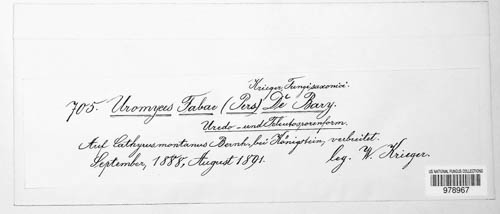 Krieger, Fungi saxonici.
705. Uromyces Fabae (Pers) De Bary.
Uredo- und Teleutosporenform.
Auf Lathyrus montanus Bernh., bei Königstein, verbreitet.
September, 1888, August 1891. leg. W. Krieger.
US NATIONAL FUNGUS COLLECTIONS
978967